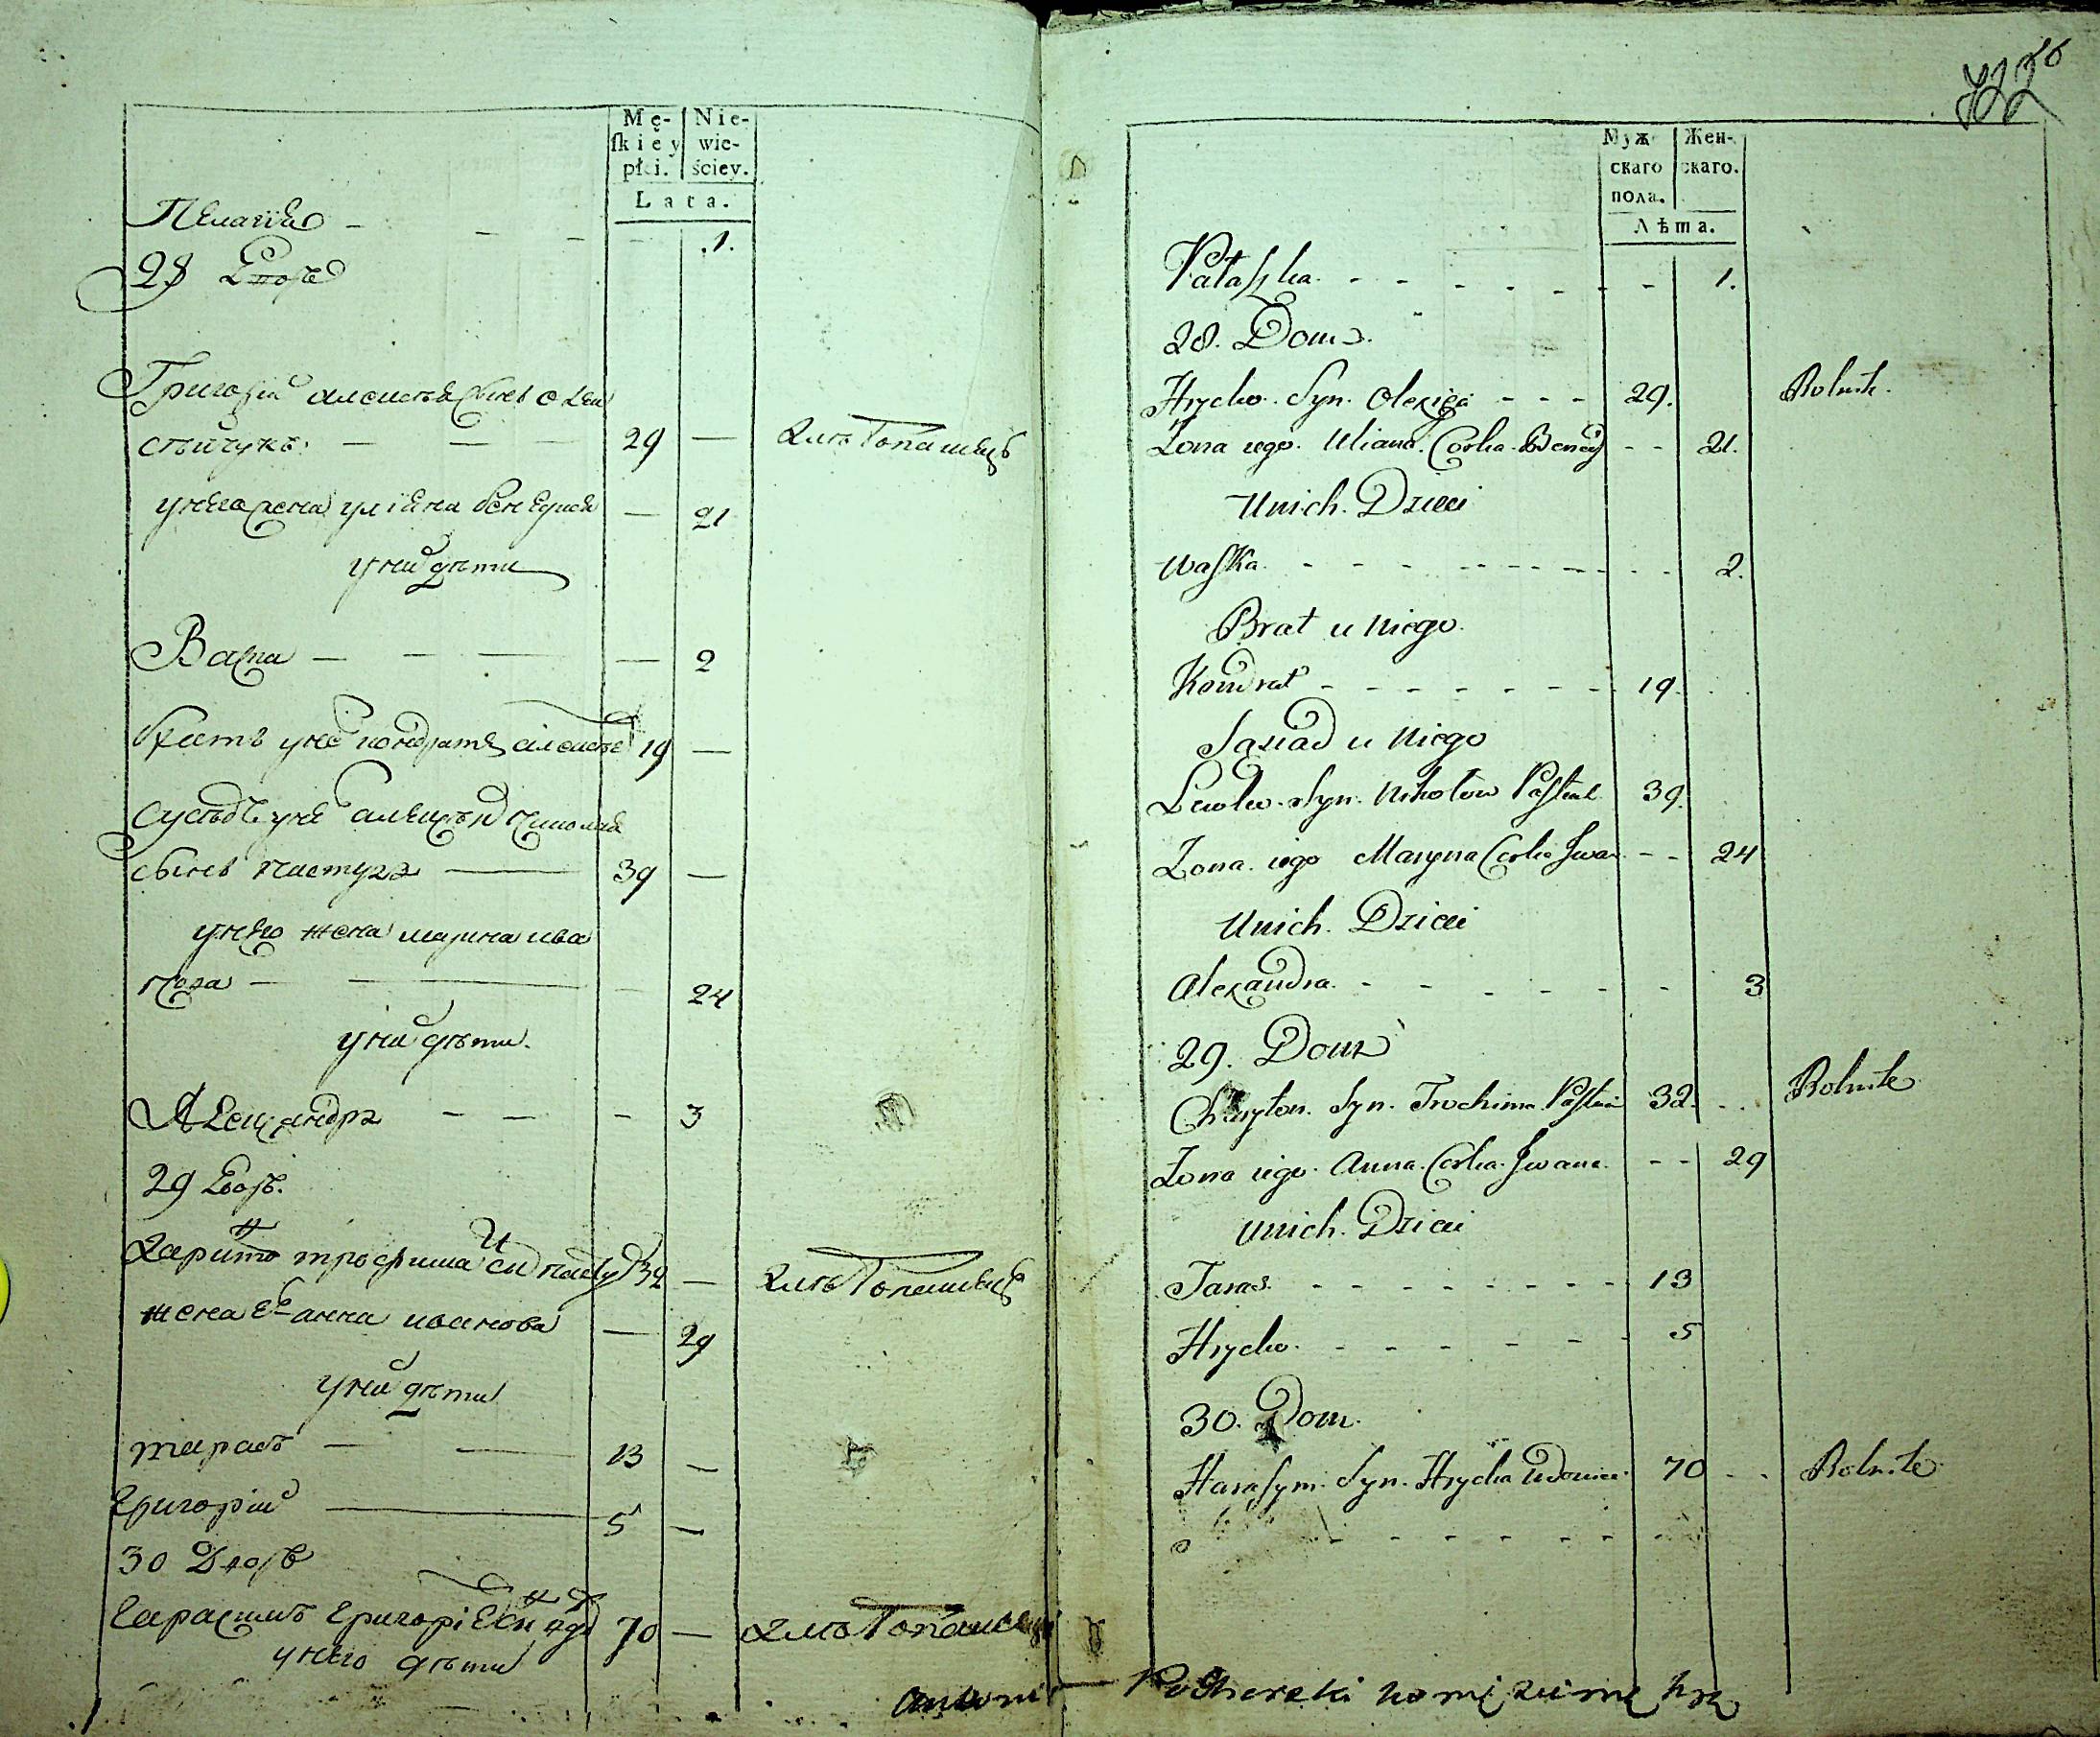 Mę-
ſkiey
płci.
Nie-
wie-
ściey.
Lata.
Пелагія - - - 1.
28 Дворъ
Григорій алексѣя сынъ
29 — хлѣбопашецъ
у него жена уліяна — 21
у ни дѣти
Васка — — — 2
братъ у не кондратъ алексѣе 19 —
сусѣдъ у не николая
сынъ пастухъ — 39 —
у него жена марина ива
нова — 24
у ни дѣти.
Александра - - - 3
29 Дворъ.
Харито трофима сн 32 — хлѣбопашецъ
жена е анна иванова — 29
у ни дѣти
тарасъ — — 13 —
Григорій — 5 —
30 Дворъ
Гарасимъ Григоріе сн 70 — хлѣбопашецъ
у него дѣти
722
Муж
скаго
пола.
Жен-
скаго.
Лѣта.
Pałaſzka - - - 1.
28. Dom.
Hryćko. Syn. Olexieja - - - 29. Rolnik.
Zona iego. Uliana. Corka. - - 21.
U nich. Dzieci
Waſka - - - 2.
Brat u niego.
Kondrat - - - 19.
Sąsiad u niego
Lewko. Syn. Mikołow Paſtuch 39.
Zona. iego Maryna Corka Iwan - - 24
U nich. Dzieci
Alexandra - - - 3
29. Dom
Charyton. Syn. Trochima 32. Rolnik
Zona iego. Anna. Corka. Iwana. - - 29
U nich. Dzieci
Taras. - - - 13
Hryćko. - - - 5
30. Dom.
Haraſym. Syn. Hryćka Wdowiec. 70 Rolnik
Antoni